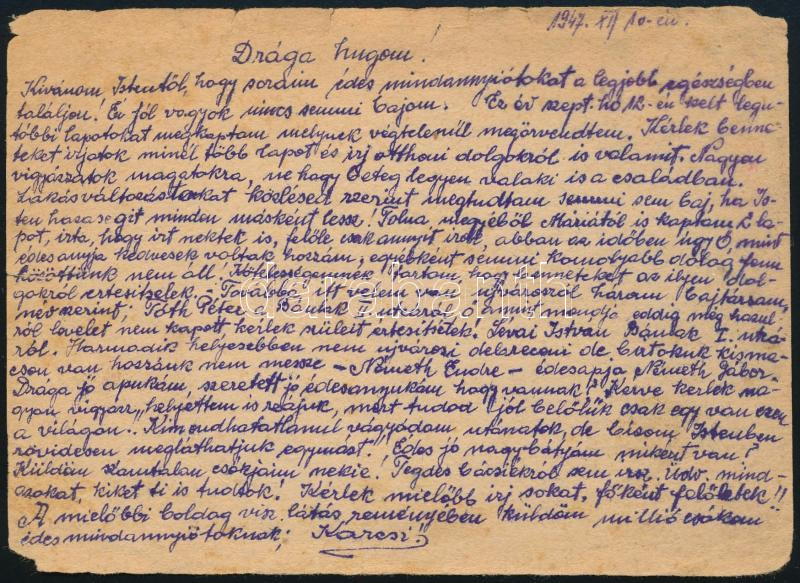 1947. XII 10-én.
Drága hugom!
Kivánom Istentől, hogy soraim édes mindannyiótokat a legjobb egészségben
találjon! Én jól vagyok nincs semmi bajom. Ez év szept. hó 12-én kelt legu-
tóbbi lapotokat megkaptam melynek végtelenül megörvendtem. Kérlek benne-
teket irjatok minél több lapot és irj otthoni dolgokról is valamit. Nagyon
vigyázzatok magatokra, ne hogy beteg legyen valaki is a családban.
Lakásváltozástokat közlésed szerint megtudtam semmi sem baj, ha Is-
ten hazasegit minden másként lessz! Tolna megyéből Máriától is kaptam 2 la-
pot, irta, hogy irt nektek is, felőle csak annyit irok, abban az időben úgy Ő, mint
édesanyja kedvesek voltak hozzám, egyebként semmi komolyabb dolog fenn
közöttünk nem áll! Kötelességemnek tartom, hogy benneteket az ilyen dol-
gokról értesitselek. - Továbbá itt velem van ujvárosról három bajtársam,
névszerint: Tóth Péter a Bának utcáról ő, amint mondja eddig még hazul-
ról levelet nem kapott kérlek szüleit értesitsétek! Tévai István Bának I. utcá-
ról. Harmadik helyesebben nem ujvárosi debreceni de birtokuk kisma-
cson van hozzánk nem messze - Németh Endre - édesapja Németh Gábor-
Drága jó apukám, szeretett jó édesanyukám hogy vannak? Kérve kérlek na-
gyon vigyázz, helyettem is reájuk, mert tudod jól belőlük csak egy van ezen
a világon. Kimondhatatlanul vágyódom utánatok, de bisom Istenben
rövidesen megláthatjuk egymást! Édes jó nagybátyám miként van?
Küldöm számtalan csókjaim nekie! Tegdes bácsiékról sem irsz. Üdv. mind-
azokat, kiket ti is tudsok! Kérlek mielőbb irj sokat, főként felőletek!!
A mielőbbi boldag visz látás reményében küldöm millió csókom
édes mindannyiótoknak; Karcsi.
darabanth